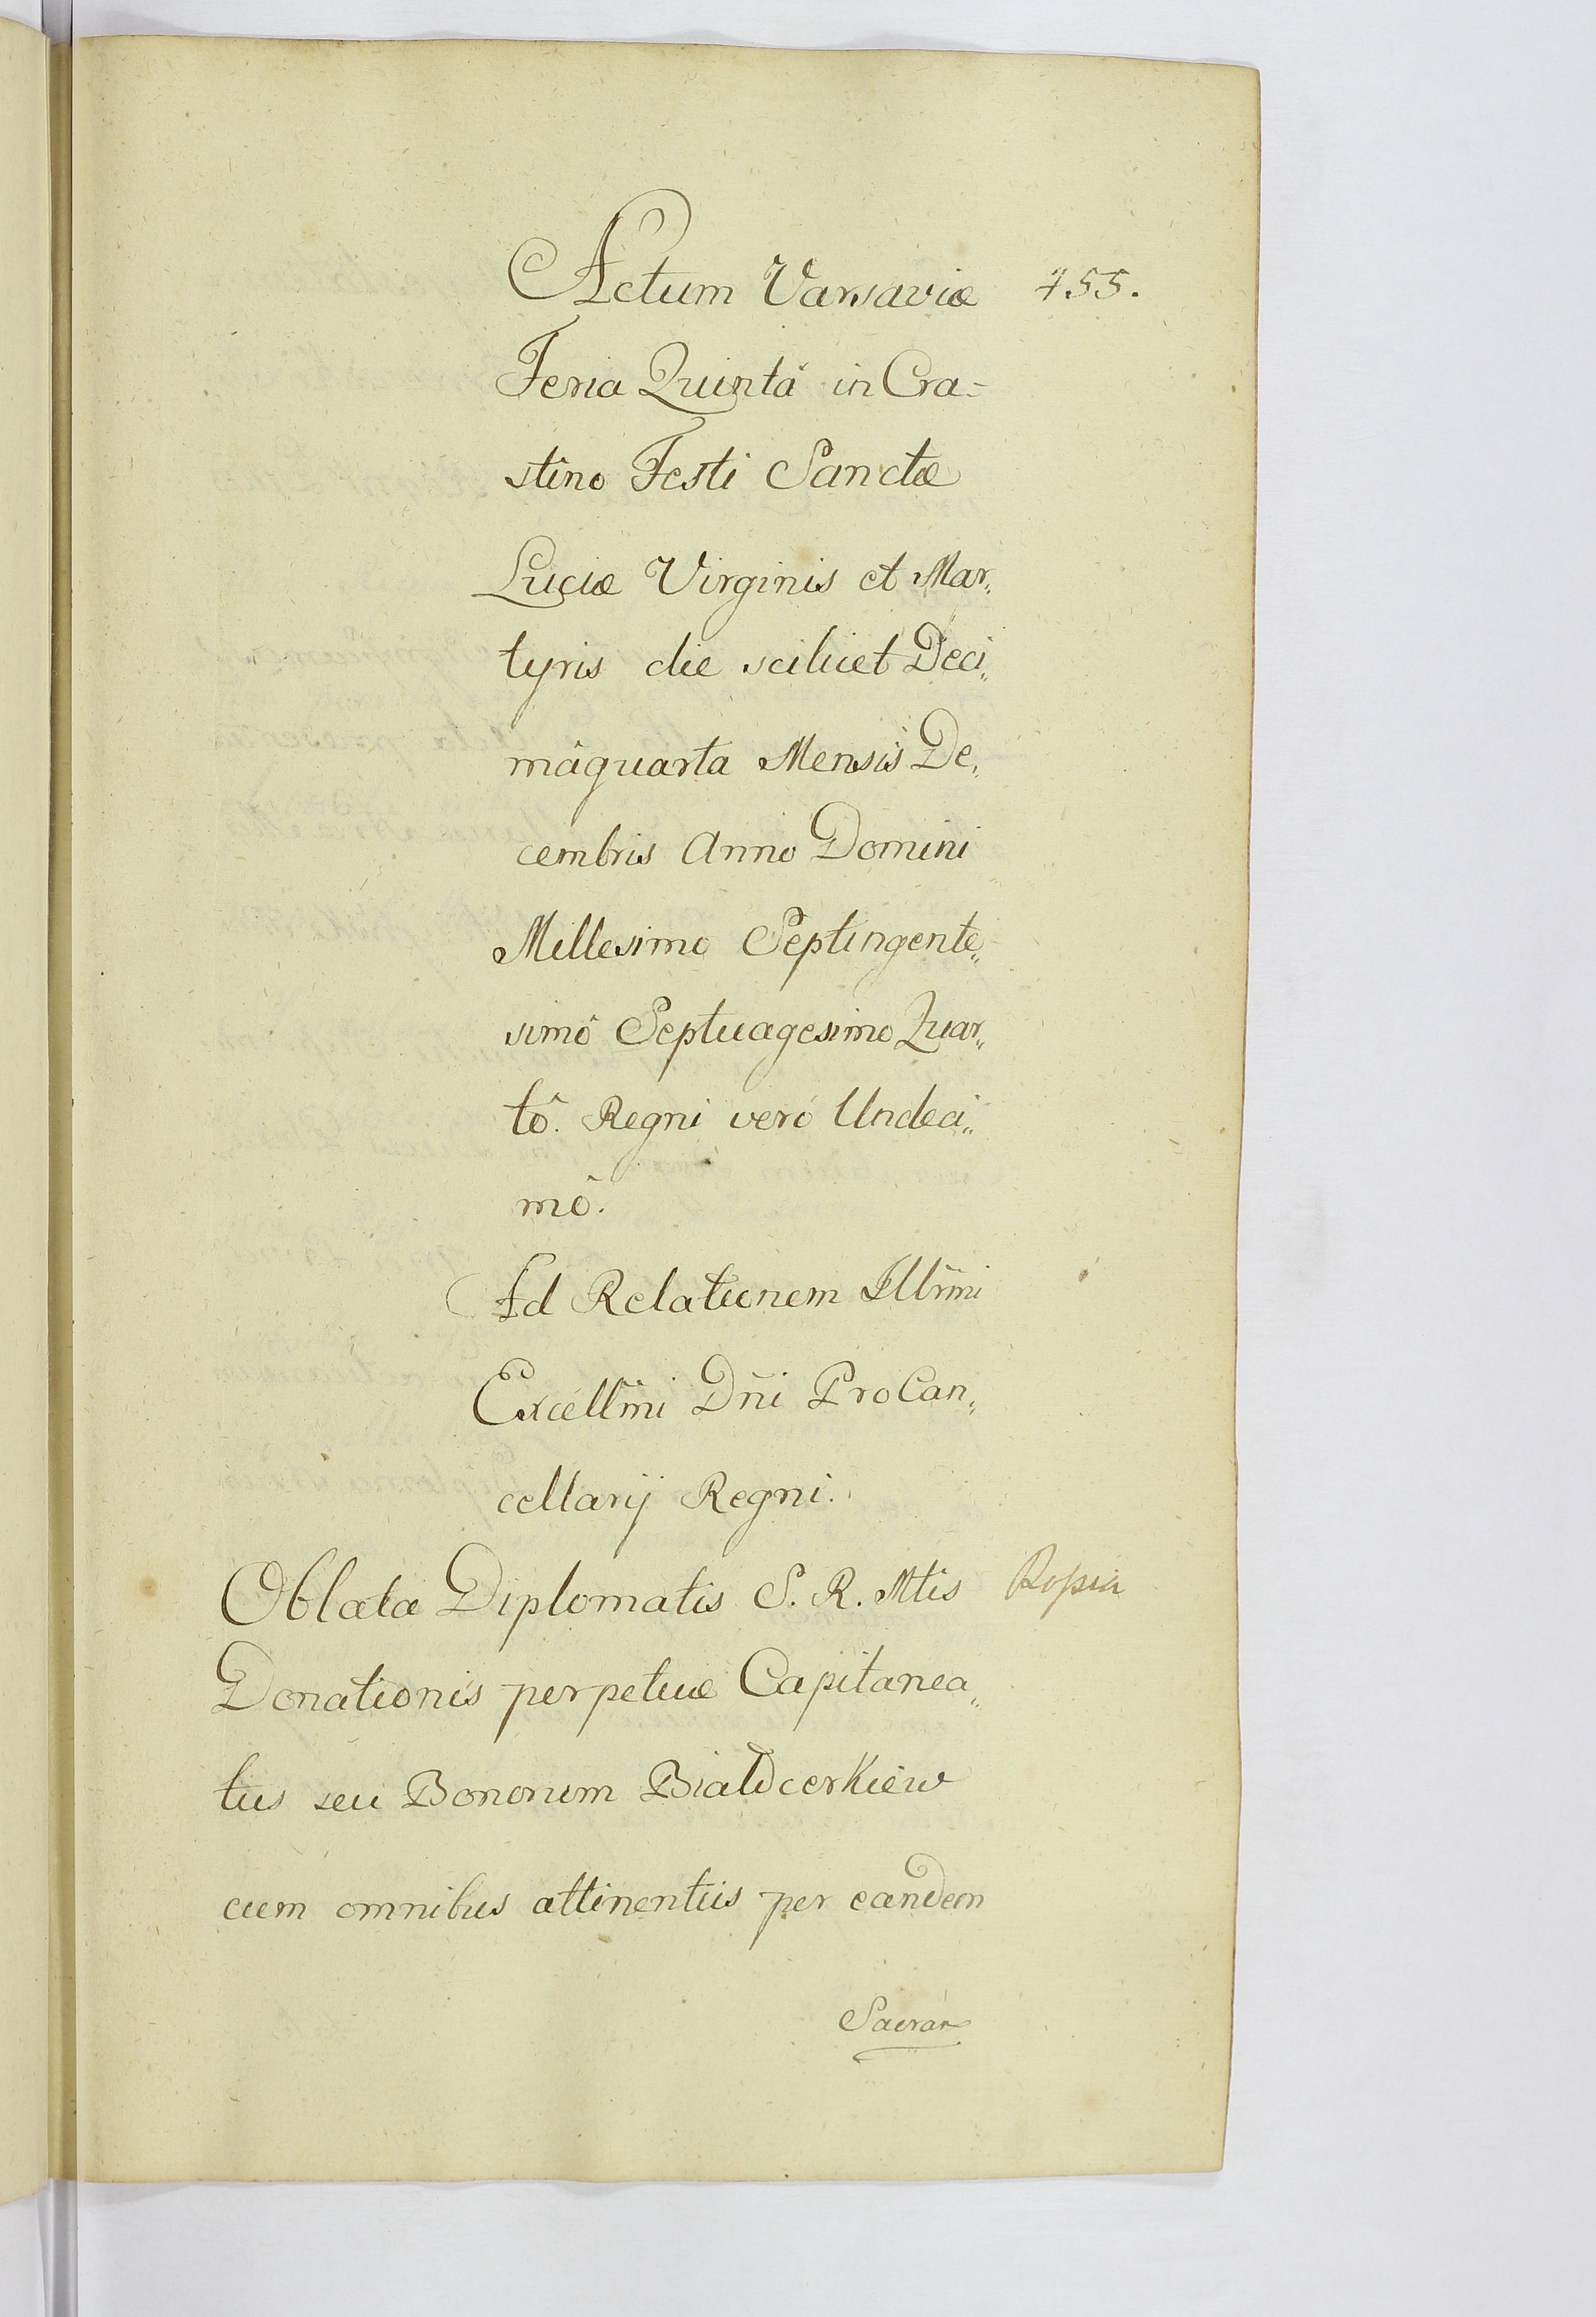 Actum Varsaviæ 455.
Feria Quintâ in Cra=
stino Festi Sanctæ
Luciæ Virginis et Mar„
tyris die scilicet Deci„
mâquarta Mensis De„
cembris Anno Domini
Millesimo Septingente„
simô Septuagesimo Quar„
tô. Regni verò Undeci„
mô.
Ad Relationem Illrmi
Excellmi Dñi ProCan„
cellarij Regni.
Oblata Diplomatis S. R. Mtis
Donationis perpetuæ Capitanea„
tus seu Bonorum Białocerkiew
cum omnibus attinentiis per eandem
Sacram